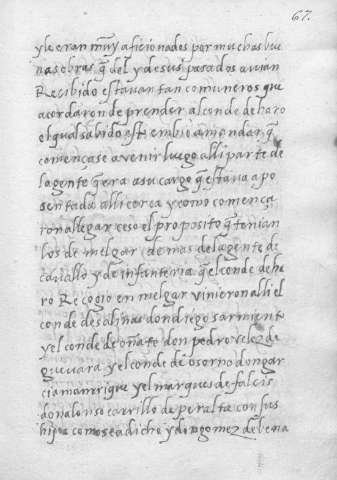 67.
y le eran muy aficionados por muchas bue
nas obras q̃ del y de sus pasados avian
Recibido estavan tan comuneros que
acordaron de prender al conde de haro
el qual sabido est embio a mandar q̃
començase a venir luego alli parte de
la gente q̃ era a su cargo q̃ estava apo
sentada alli cerca y como comença
ron allegar ceso el proposito q̃ tenian
los de melgar demas de la gente de
cavallo y de infanteria q̃ el conde de ha
ro Recogio en melgar vinieron alli el
conde de salinas don diego sarmiento
y el conde de oñate don pedro velez de
guevara y el conde de osorno don gar
cia manrrique y el marques de falces
don alonso carrillo de peralta con sus
hijos como sea dicho y don gomez de bena